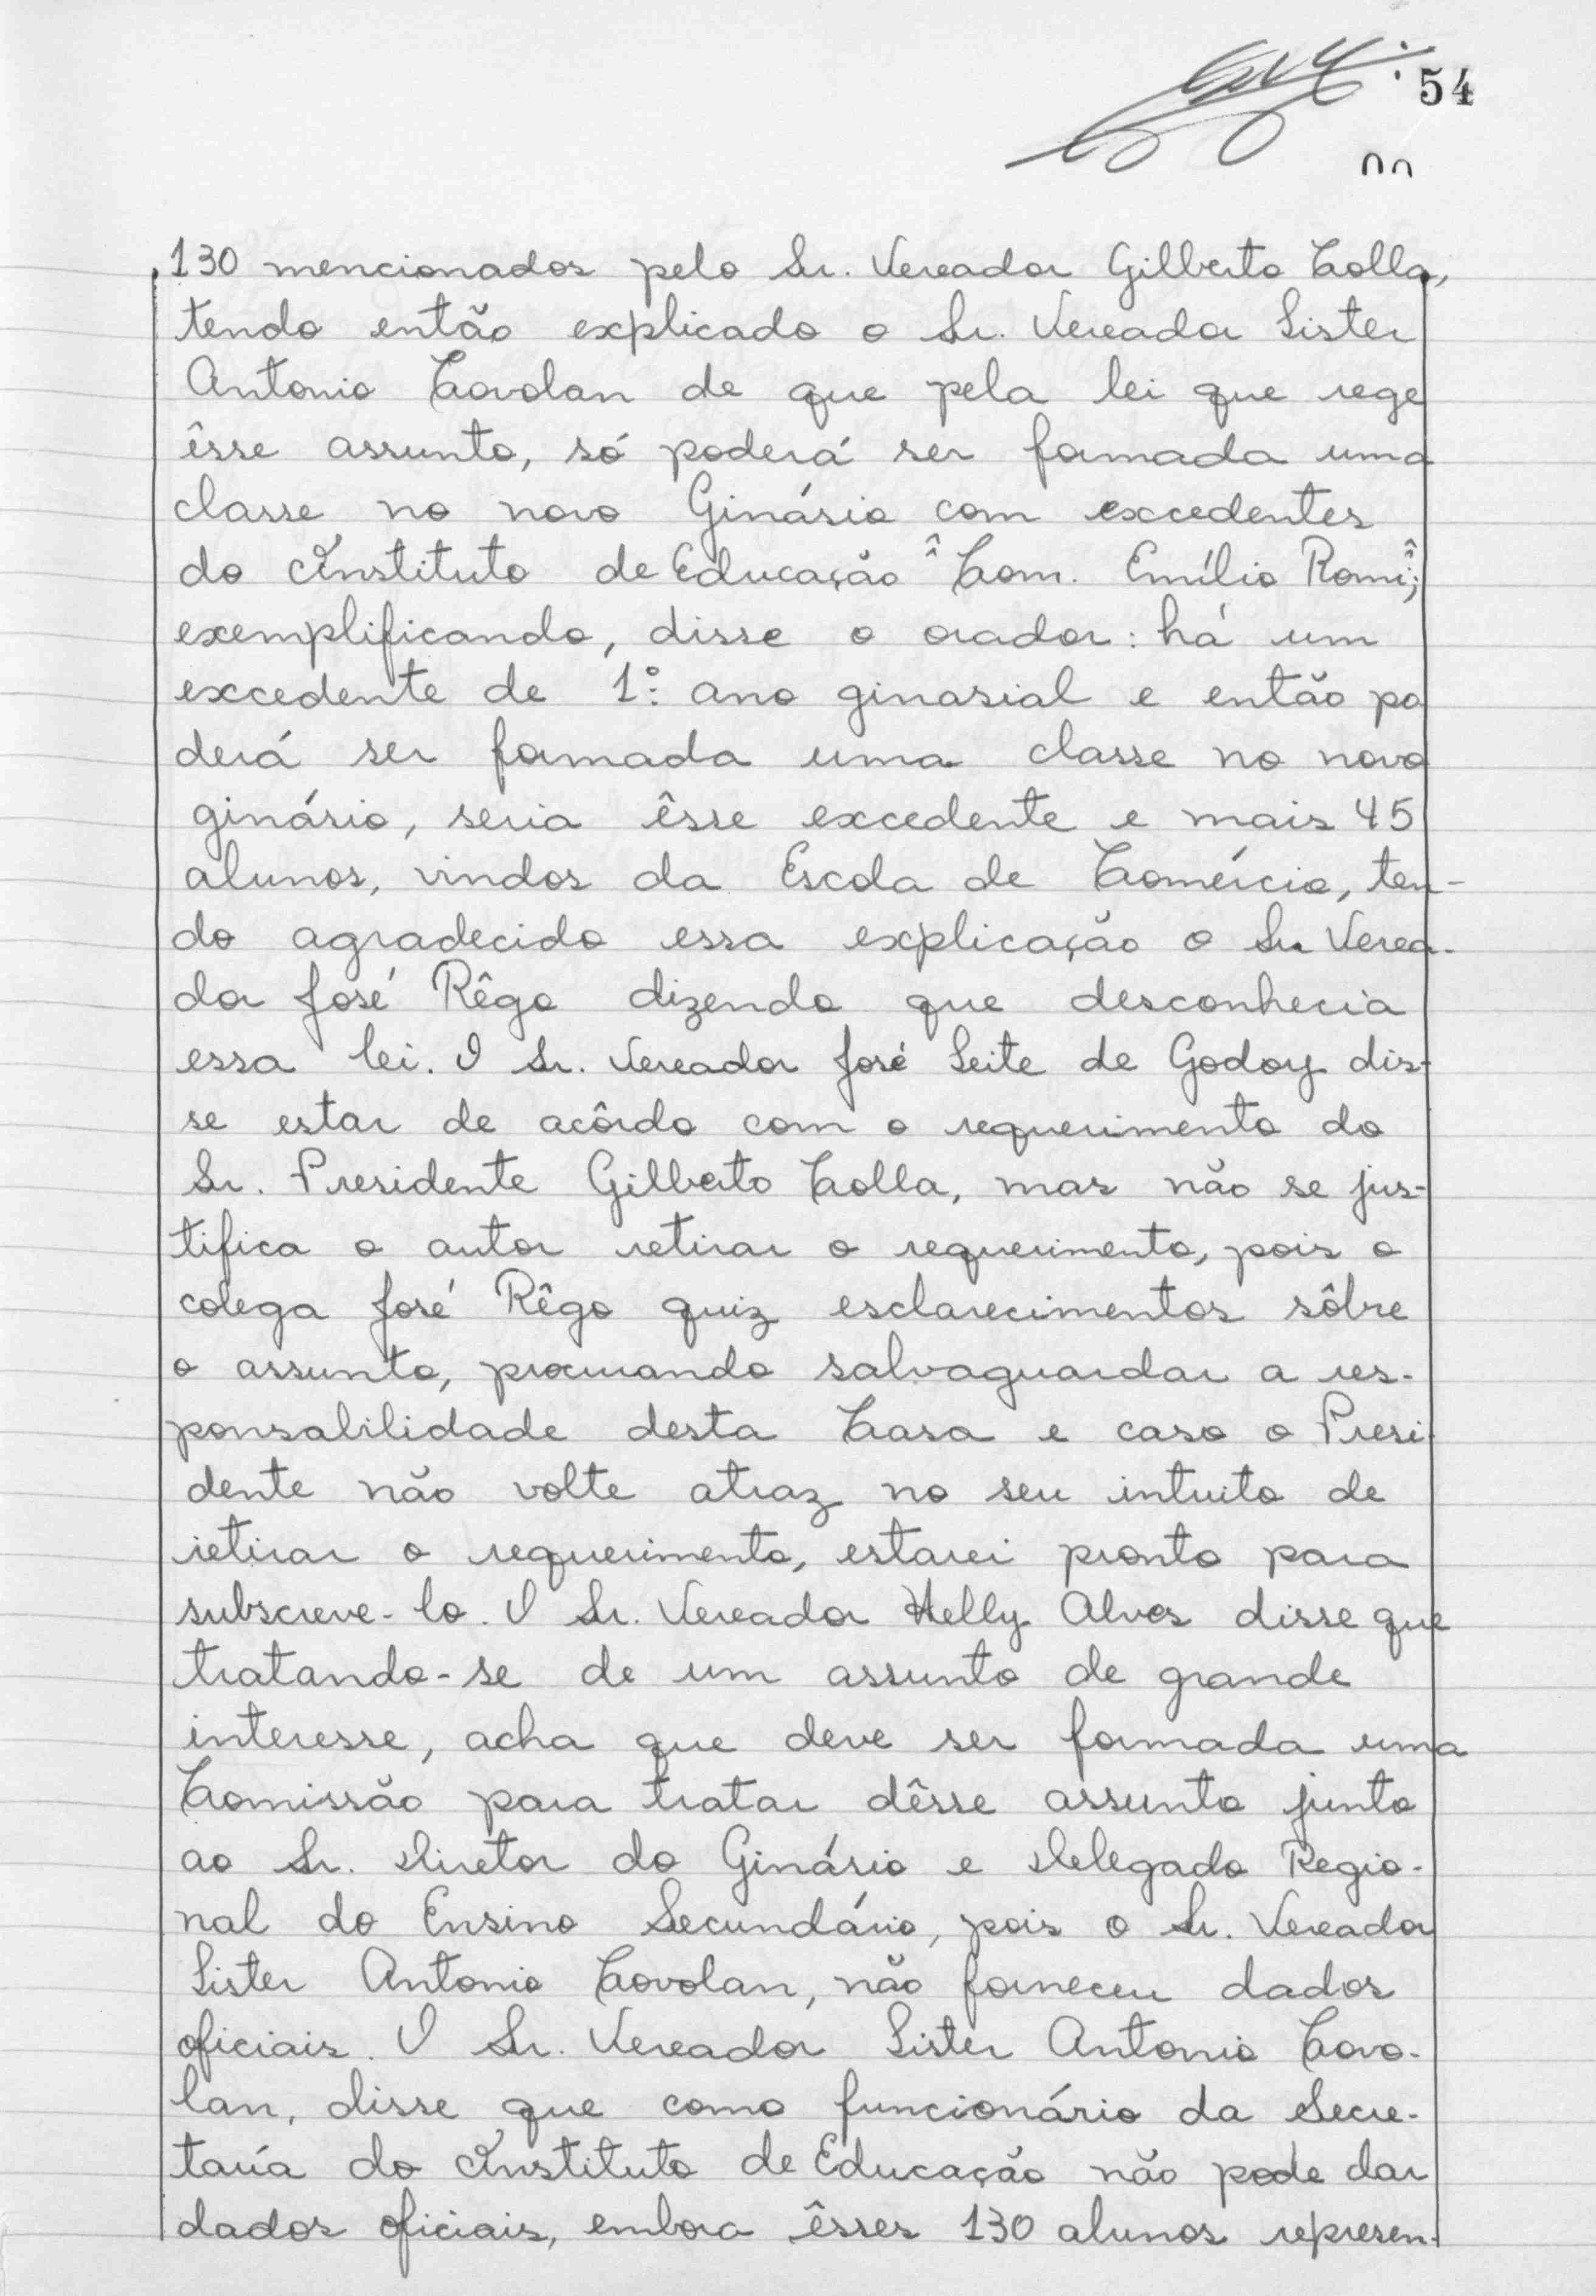 54
130 mencionados pelo Sr. Vereador Gilberto Colla,
tendo então explicado o Sr. Vereador Lister
Antonio Covolan de que pela lei que rege
êsse assunto, só poderá ser formada uma
classe no novo Ginásio com excedentes
do Instituto de Educação "Com. Emílio Romi";
exemplificando, disse o orador: há um
excedente de 1º ano ginasial e então po
derá ser formada uma classe no novo
ginásio, seria êsse excedente e mais 45
alunos, vindos da Escola de Comércio, ten-
do agradecido essa explicação o Sr. Verea-
dor José Rêgo dizendo que desconhecia
essa lei. O Sr. Vereador José Leite de Godoy dis-
se estar de acôrdo com o requerimento do
Sr. Presidente Gilberto Colla, mas não se jus-
tifica o autor retirar o requerimento, pois o
colega José Rêgo quiz esclarecimentos sôbre
o assunto, procurando salvaguardar a res-
ponsabilidade desta Casa e caso o Presi-
dente não volte atraz no seu intuito de
retirar o requerimento, estarei pronto para
subscreve-lo. O Sr. Vereador Helly Alves disse que
tratando-se de um assunto de grande
interesse, acha que deve ser formada uma
Comissão para tratar dêsse assunto junto
ao Sr. Diretor do Ginásio e Delegado Regio-
nal do Ensino Secundário, pois o Sr. Vereador
Lister Antonio Covolan, não forneceu dados
oficiais. O Sr. Vereador Lister Antonio Covo-
lan, disse que como funcionário da Secre-
taria do Instituto de Educação não pode dar
dados oficiais, embora êsses 130 alunos represen-